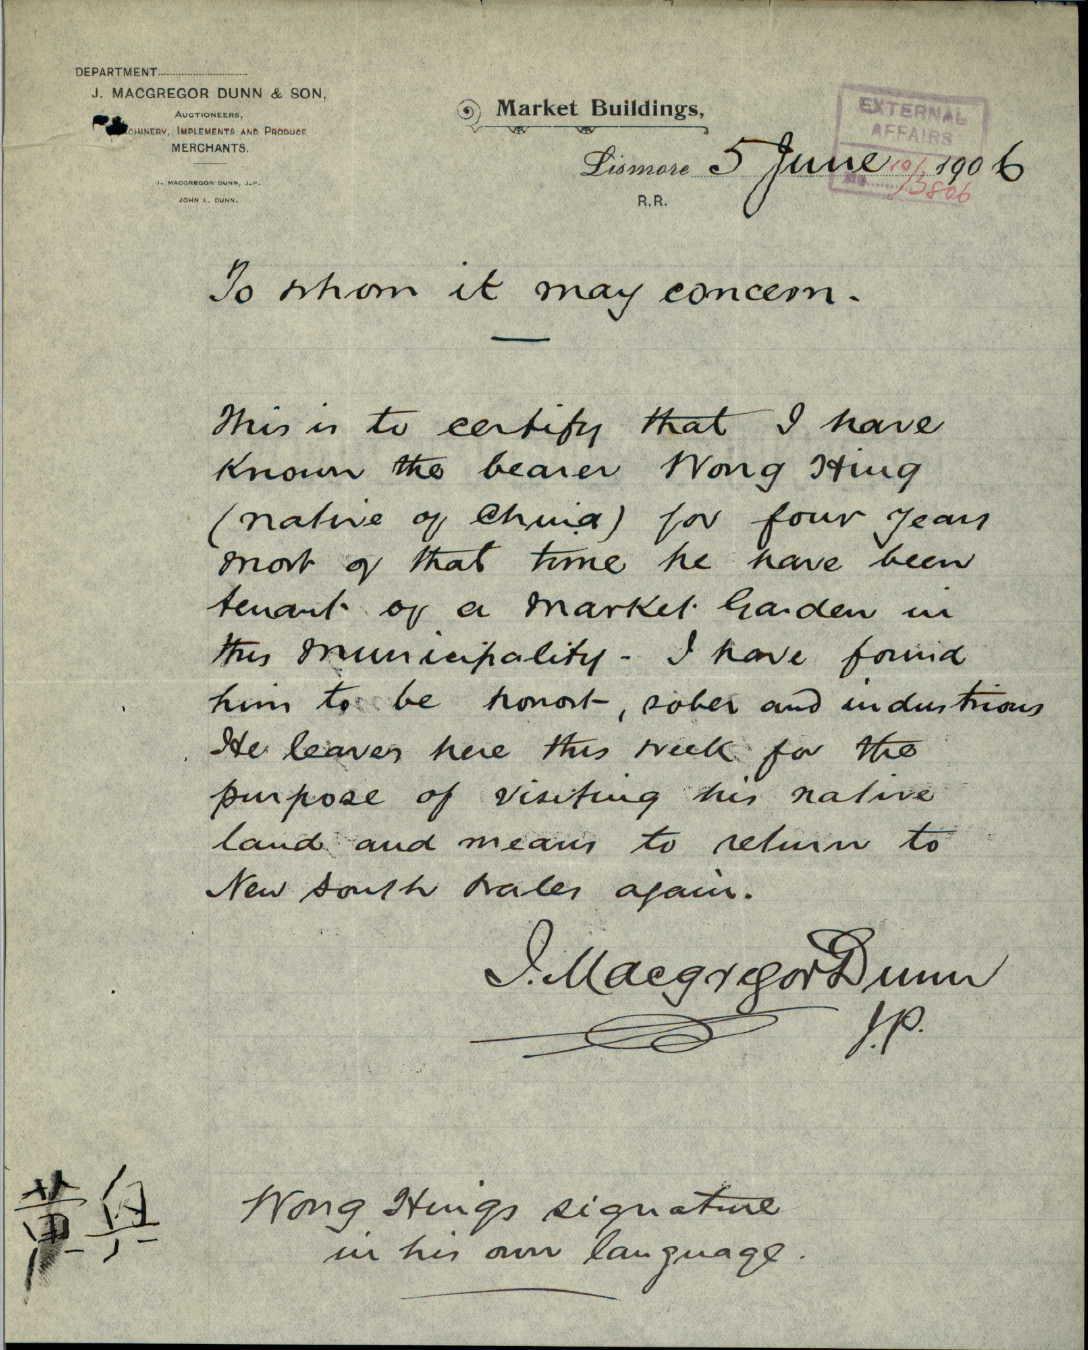 DEPARTMENT
J. MACGREGOR DUNN & SON,
AUCTIONEERS,
IMPLEMENTS AND PRODUCE
MERCHANTS.
J. MACGREGOR DUNN, J.P.
JOHN L. DUNN.
Market Buildings,
Lismore 5 June 1906
R.R.
EXTERNAL
AFFAIRS
To whom it may concern.
This is to certify that I have
known the bearer Wong Hing
(native of China) for four years
most of that time he have been
tenant of a market Garden in
this municipality - I have found
him to be honest, sober and industrious
He leaves here this week for the
purpose of visiting his native
land and means to return to
New South Wales again.
J. Macgregor Dunn
J.P.
黄
Wong Hings signature
in his own language.